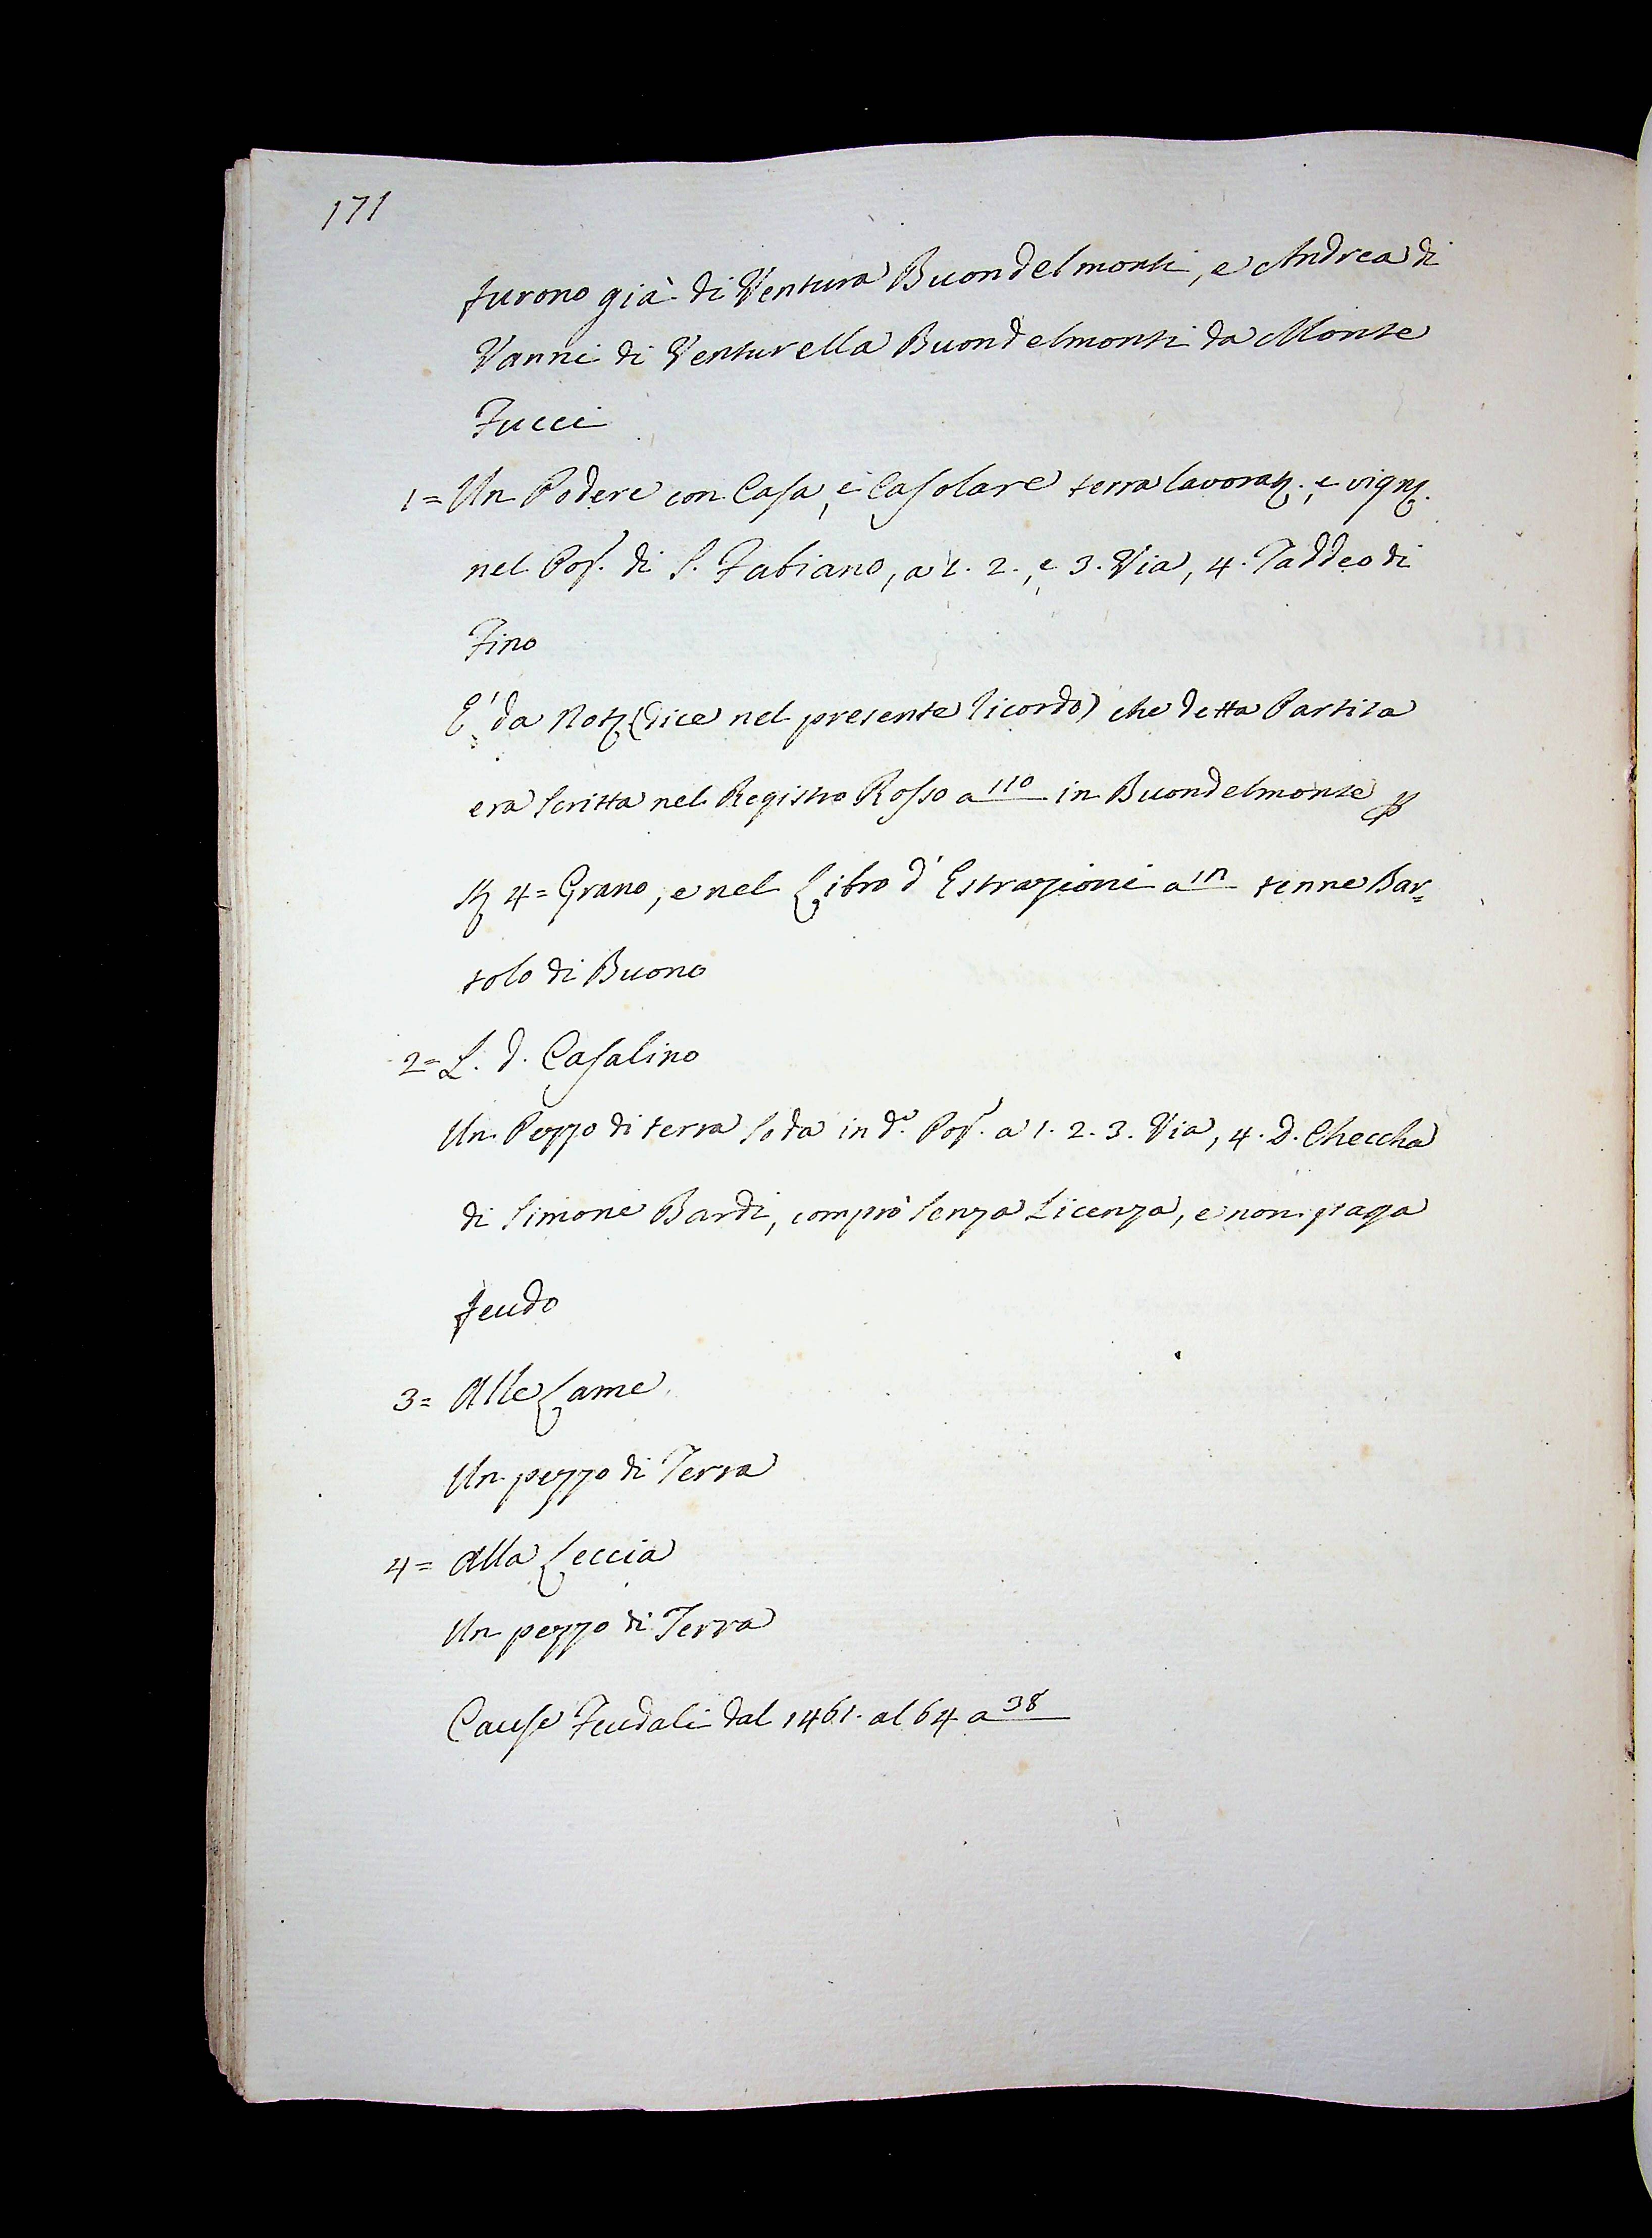 171
furono già di Ventura Buondelmonti, e Andrea di
Vanni di Venturella Buondelmonti da Monte
Fucci
1= Un Podere con Casa, e Casolare terra lavorat., e vignt.
nel Pop. di S. Fabiano, a 1. 2., e 3. Via, 4. Taddeo di
Fino
E' da Not. (dice nel presente ricordo) che detta Partita
era scritta nel Registro Rosso a 110 in Buondelmonte p
St. 4= Grano, e nel Libro d'Estrazioni a 111 tenne Bar=
tolo di Buono
2= L. d. Casalino
Un Pezzo di terra soda in do. Pop. a 1. 2. 3. Via, 4. D. Checcha
di Simone Bardi, comprò senza Licenza, e non paga
feudo
3= Alle Lame
Un pezzo di Terra
4= Alla Leccia
Un pezzo di Terra
Cause Feudali dal 1461. al 64 a 38